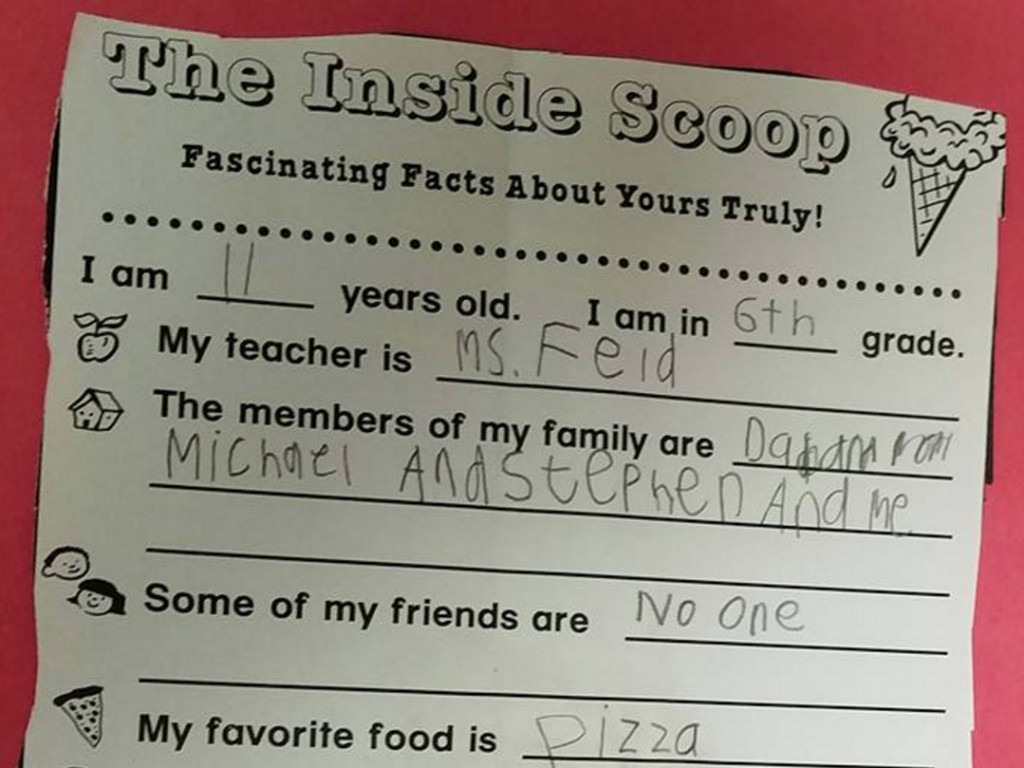 The Inside Scoop
Fascinating Facts About Yours Truly!
I am 11 years old. I am in 6th grade.
My teacher is Ms. Feid
The members of my family are Dad mom
Michael And Stephen And me
Some of my friends are No one
My favorite food is pizza